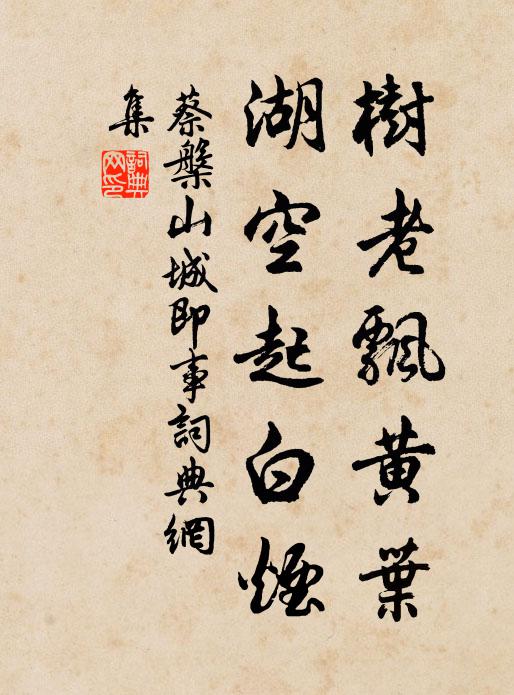 樹老飄黃葉
湖空起白煙
蔡槃山城即事詞典網
集
詞典
网印